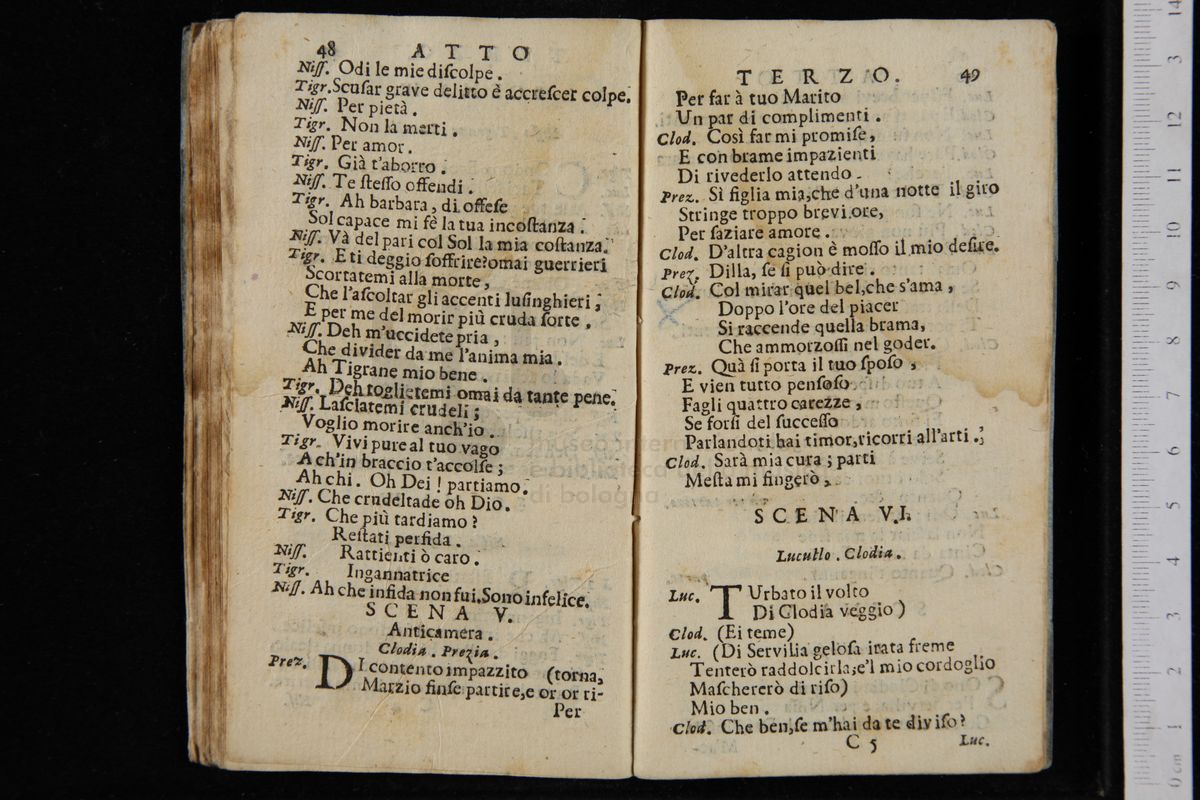 48 ATTO
Niſſ. Odi le mie diſcolpe.
Tigr. Scuſar grave delitto è accreſcer colpe.
Niſſ. Per pietà.
Tigr. Non la merti.
Niſſ. Per amor.
Tigr. Già t'aborro.
Niſſ. Te ſteſſo offendi.
Tigr. Ah barbara, di offeſe
Sol capace mi fè la tua incoſtanza.
Niſſ. Và del pari col Sol la mia coſtanza.
Tigr. E ti deggio ſoffrire? omai guerrieri
Scortatemi alla morte,
Che l'aſcoltar gli accenti luſinghieri,
E per me del morir più cruda ſorte.
Niſſ. Deh m'uccidete pria,
Che divider da me l'anima mia.
Ah Tigrane mio bene.
Tigr. Deh toglietemi omai da tante pene.
Niſſ. Laſciatemi crudeli;
Voglio morire anch'io.
Tigr. Vivi pure al tuo vago
A ch'in braccio t'accolſe;
Ah chi. Oh Dei! partiamo.
Niſſ. Che crudeltade oh Dio.
Tigr. Che più tardiamo?
Reſtati perfida.
Niſſ. Rattienti ò caro.
Tigr. Ingannatrice
Niſſ. Ah che infida non fui. Sono infelice.
SCENA V.
Anticamera.
Clodia. Prezia.
Prez. DI contento impazzito (torna,
Marzio finſe partire, e or or ri-
Per
TERZO. 49
Per far à tuo Marito
Un par di complimenti.
Clod. Così far mi promiſe,
E con brame impazienti
Di rivederlo attendo.
Prez. Sì figlia mia, che d'una notte il giro
Stringe troppo brevi ore,
Per ſaziare amore.
Clod. D'altra cagion è moſſo il mio deſire.
Prez. Dilla, ſe ſi può dire.
Clod. Col mirar quel bel, che s'ama,
Doppo l'ore del piacer
Si raccende quella brama,
Che ammorzoſſi nel goder.
Prez. Quà ſi porta il tuo ſpoſo,
E vien tutto penſoſo
Fagli quattro carezze,
Se forſi del ſucceſſo
Parlandoti hai timor, ricorri all'arti.
Clod. Sarà mia cura; parti
Meſta mi fingerò.
SCENA VI.
Lucullo. Clodia.
Luc. TUrbato il volto
Di Clodia veggio)
Clod. (Ei teme)
Luc. (Di Servilia geloſa irata freme
Tenterò raddolcirla; e'l mio cordoglio
Maſchererò di riſo)
Mio ben.
Clod. Che ben, ſe m'hai da te diviſo?
C 5 Luc.